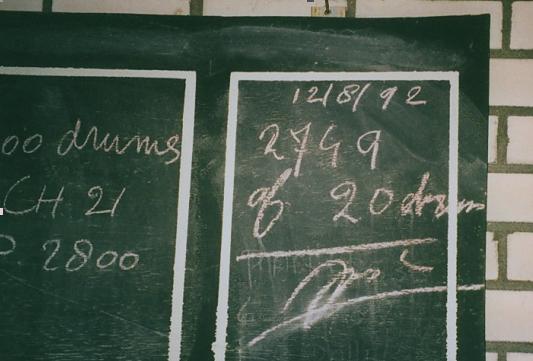 00 drums
CH 21
2800
12/8/92
2749
of 20 drum